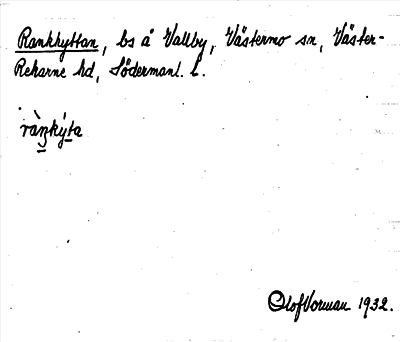 Rankhyttan, bs å Vallby, Västermo sn, Väster-
Rekarne hd, Södermanl. l.
ràŋký̀ta
Olof Vorman 1932.